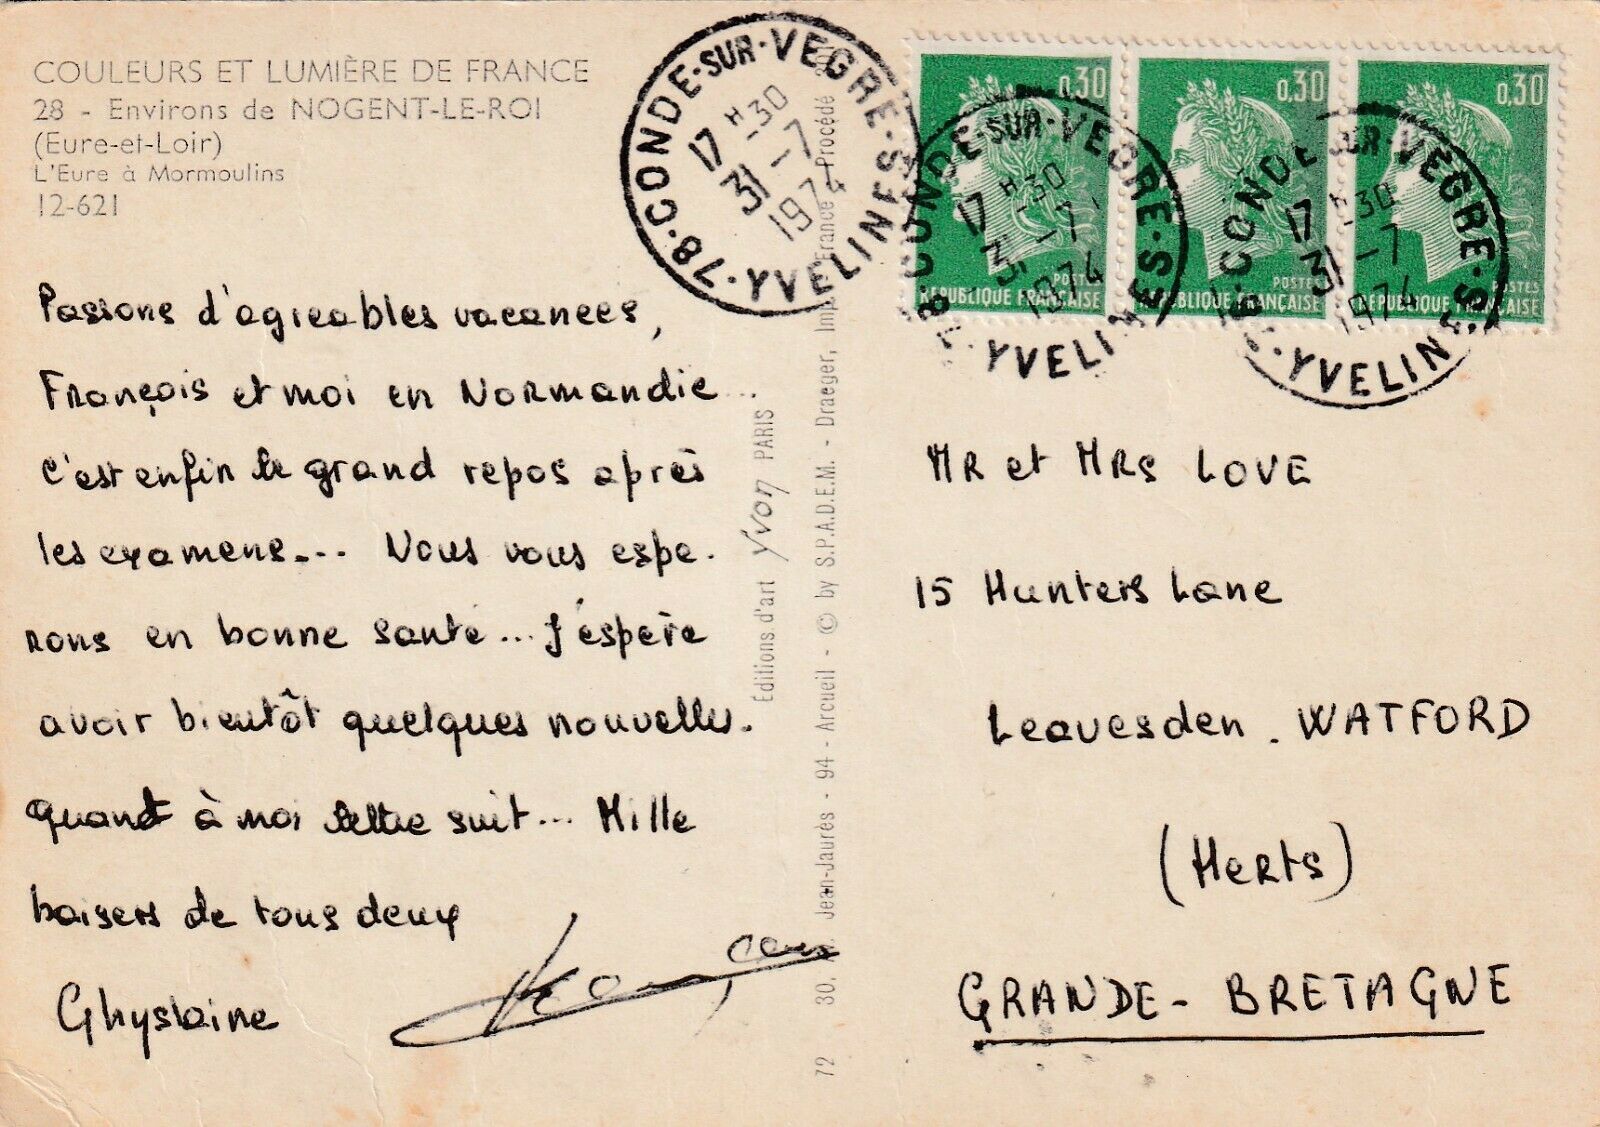 COULEURS ET LUMIÈRE DE FRANCE
28 - Environs de NOGENT-LE-ROI
(Eure-et-Loir)
L'Eure à Mormoulins
12-621
Passons d'agréables vacances,
François et moi en Normandie...
C'est enfin le grand repos après
les examens... Nous vous espé-
rons en bonne santé... J'espère
avoir bientôt quelques nouvelles.
quant à moi lettre suit... Mille
baisers de tous deux
Ghyslaine
François
Éditions d'art Yvon PARIS
72 30, Jean-Jaurès - 94 - Arcueil - © by S.P.A.D.E.M. - Draeger, Imp. France Procédé
78·CONDE-SUR-VEGRE·S
YVELINES
17 H -30
31 -7
1974
0,30
POSTES
REPUBLIQUE FRANÇAISE
0,30
POSTES
REPUBLIQUE FRANÇAISE
0,30
POSTES
REPUBLIQUE FRANÇAISE
78·CONDE-SUR-VEGRE·S
YVELINES
17 H -30
31 -7
1974
78·CONDE-SUR-VEGRE·S
YVELINES
17 -30
31 -7
1974
MR et MRS LOVE
15 Hunters Lane
Leavesden . WATFORD
(Herts)
GRANDE-BRETAGNE